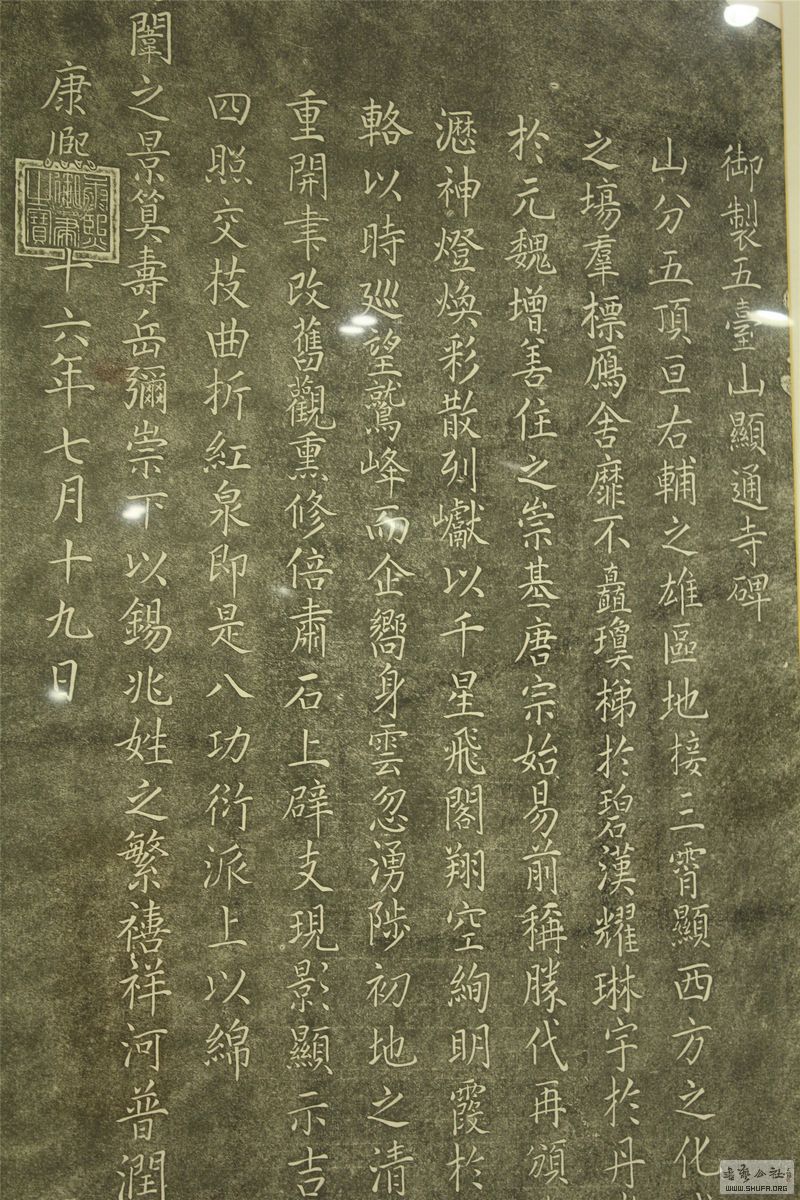 御製五臺山顯通寺碑
山分五頂亘右輔之雄區地接三霄顯西方之化
之塲羣標鴈舍靡不矗瓊梯於碧漢耀琳宇於丹
於元魏增善住之崇基唐宗始易前稱勝代再頒
瀝神燈煥彩散列巘以千星飛閣翔空絢明霞於
輅以時廵望鷲峰而企嚮身雲忽湧陟初地之清
重開聿改舊觀熏修倍肅石上辟支現影顯示吉
四照交枝曲折紅泉即是八功衍派上以綿
闈之景筭壽岳彌崇下以錫兆姓之繁禧祥河普潤
康熙十六年七月十九日
康熙御書之寶
書法公社
WWW.SHUFA.ORG